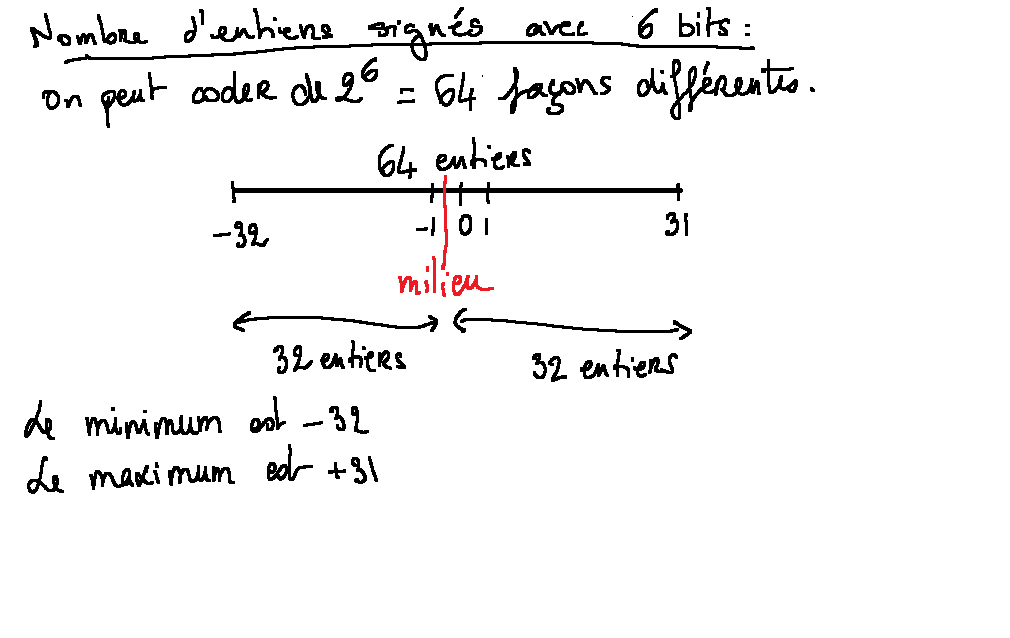 Nombre d'entiers signés avec 6 bits :
On peut coder de 2^6 = 64 façons différentes.
64 entiers
-32 -1 0 1 31
milieu
32 entiers 32 entiers
Le minimum est -32
Le maximum est +31